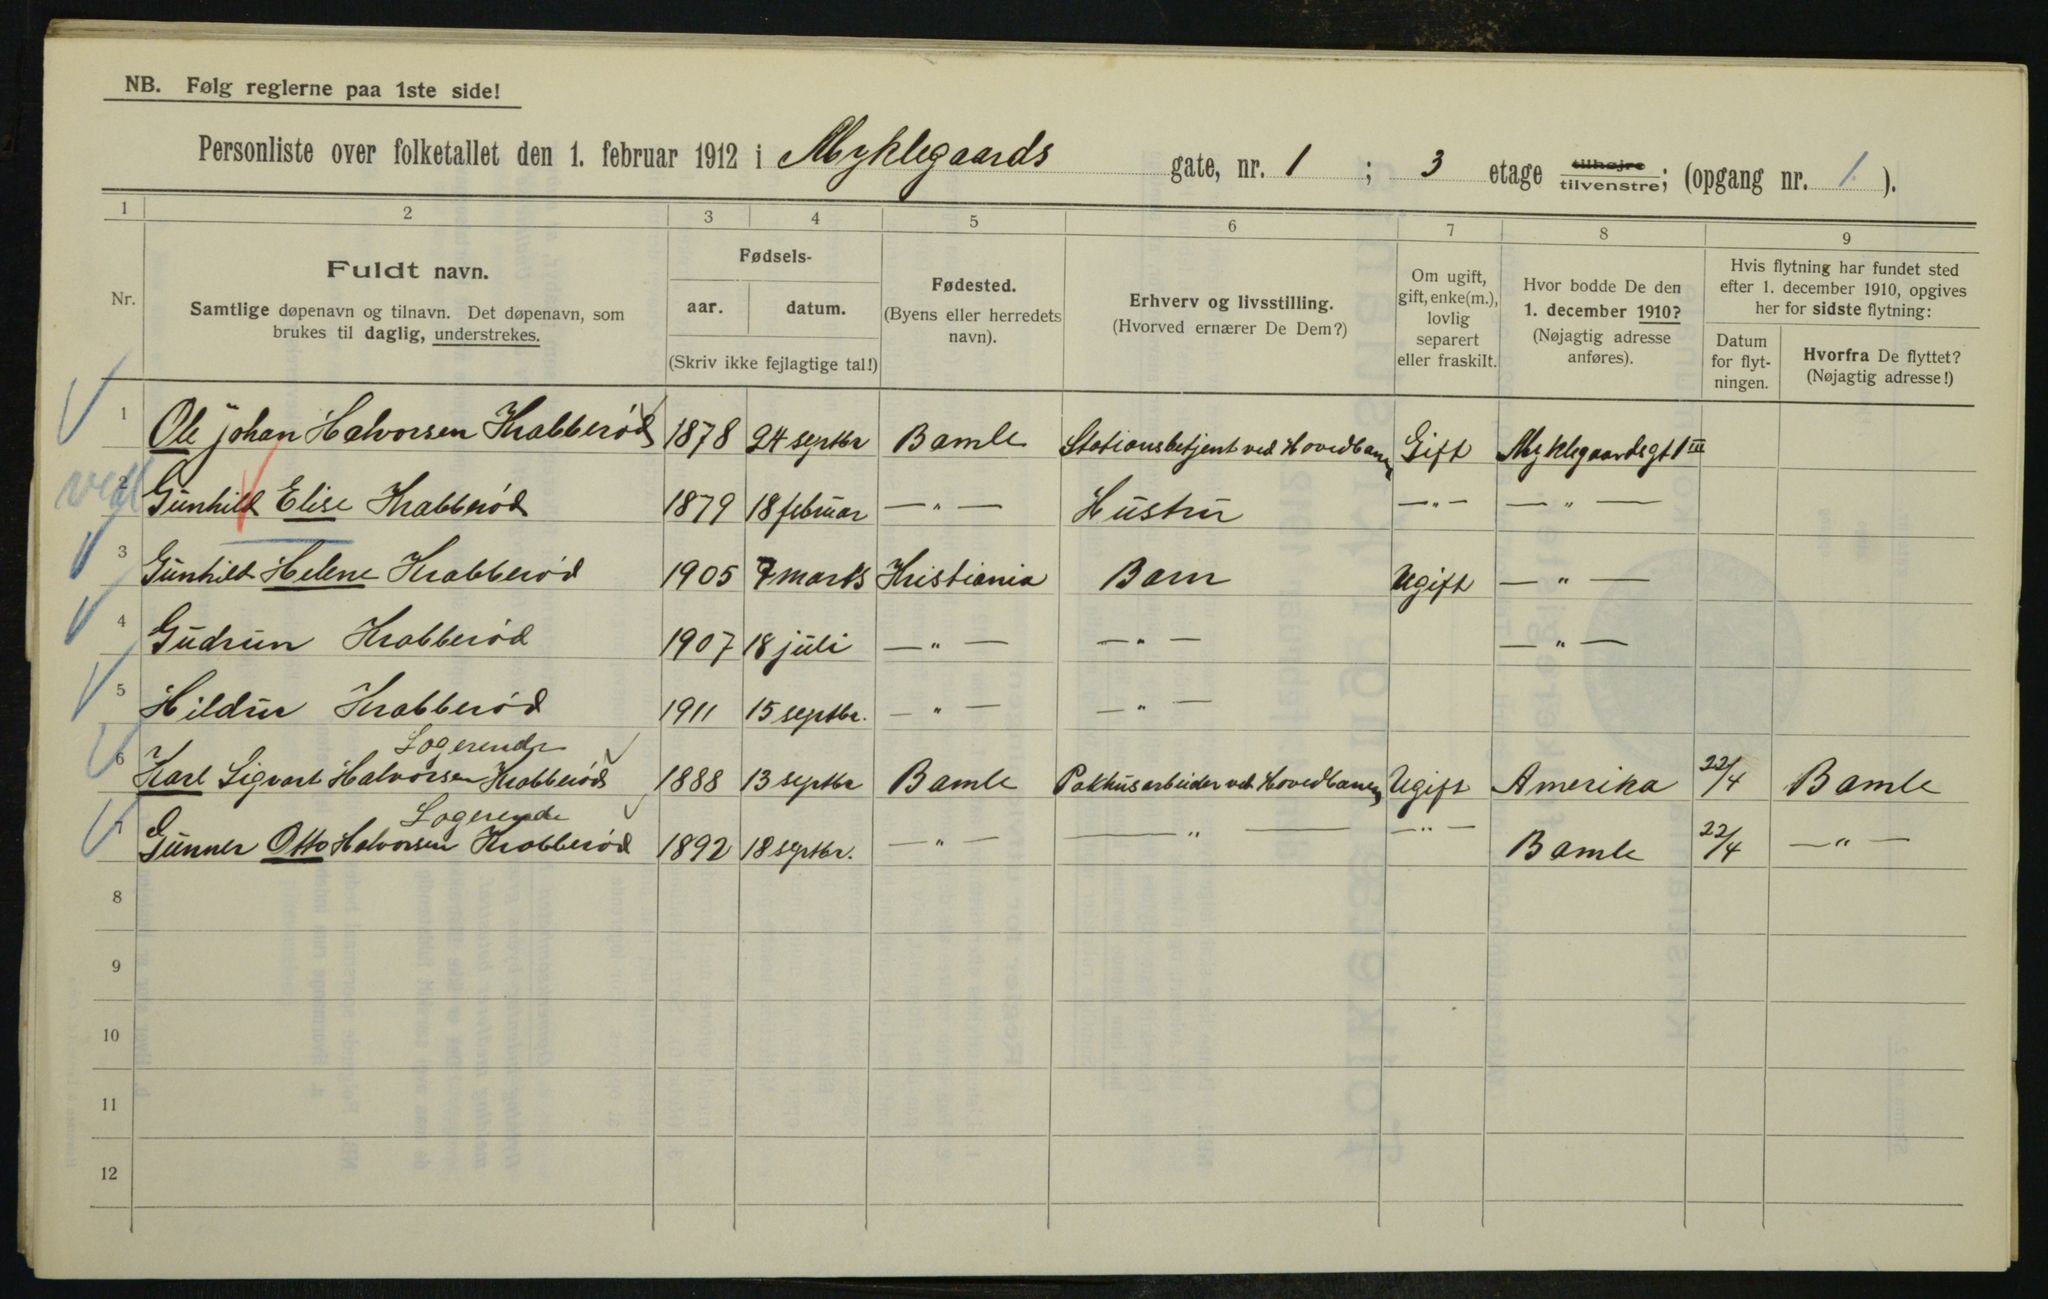 NB. Følg reglerne paa 1ste side!
Personliste over folketallet den 1. februar 1912 i Myklegaards gate, nr. 1 ; 3 etage tilhøjre tilvenstre; (opgang nr. 1 ).
1 2 3 4 5 6 7 8 9
Nr.
Fuldt navn.
Samtlige døpenavn og tilnavn. Det døpenavn, som
brukes til daglig, understrekes.
Fødsels-
aar. datum.
(Skriv ikke fejlagtige tal!)
Fødested.
(Byens eller herredets
navn).
Erhverv og livsstilling.
(Hvorved ernærer De Dem?)
Om ugift,
gift, enke(m.),
lovlig
separert
eller fraskilt.
Hvor bodde De den
1. december 1910?
(Nøjagtig adresse
anføres).
Hvis flytning har fundet sted
efter 1. december 1910, opgives
her for sidste flytning:
Datum
for flyt-
ningen.
Hvorfra De flyttet?
(Nøjagtig adresse!)
1 Ole Johan Halvorsen Krabberød 1878 24 septbr Bamle Stationsbetjent ved Hovedbanen Gift Myklegaardsgt 1 III
2 Gunhild Elise Krabberød 1879 18 februar — " — Hustru — " — — " —
3 Gunhild Helene Krabberød 1905 7 marts Kristiania Barn Ugift — " —
4 Gudrun Krabberød 1907 18 juli — " — — " — — " —
5 Hildur Krabberød 1911 15 septbr. — " — — " —
Logerende
6 Karl Sigvart Halvorsen Krabberød 1888 13 septbr Bamle Pakhusarbeider ved Hovedbanen Ugift Amerika 22/4 Bamle
Logerende
7 Gunner Otto Halvorsen Krabberød 1892 18 septbr. — " — — " — — " — Bamle 22/4 — " —
8
9
10
11
12